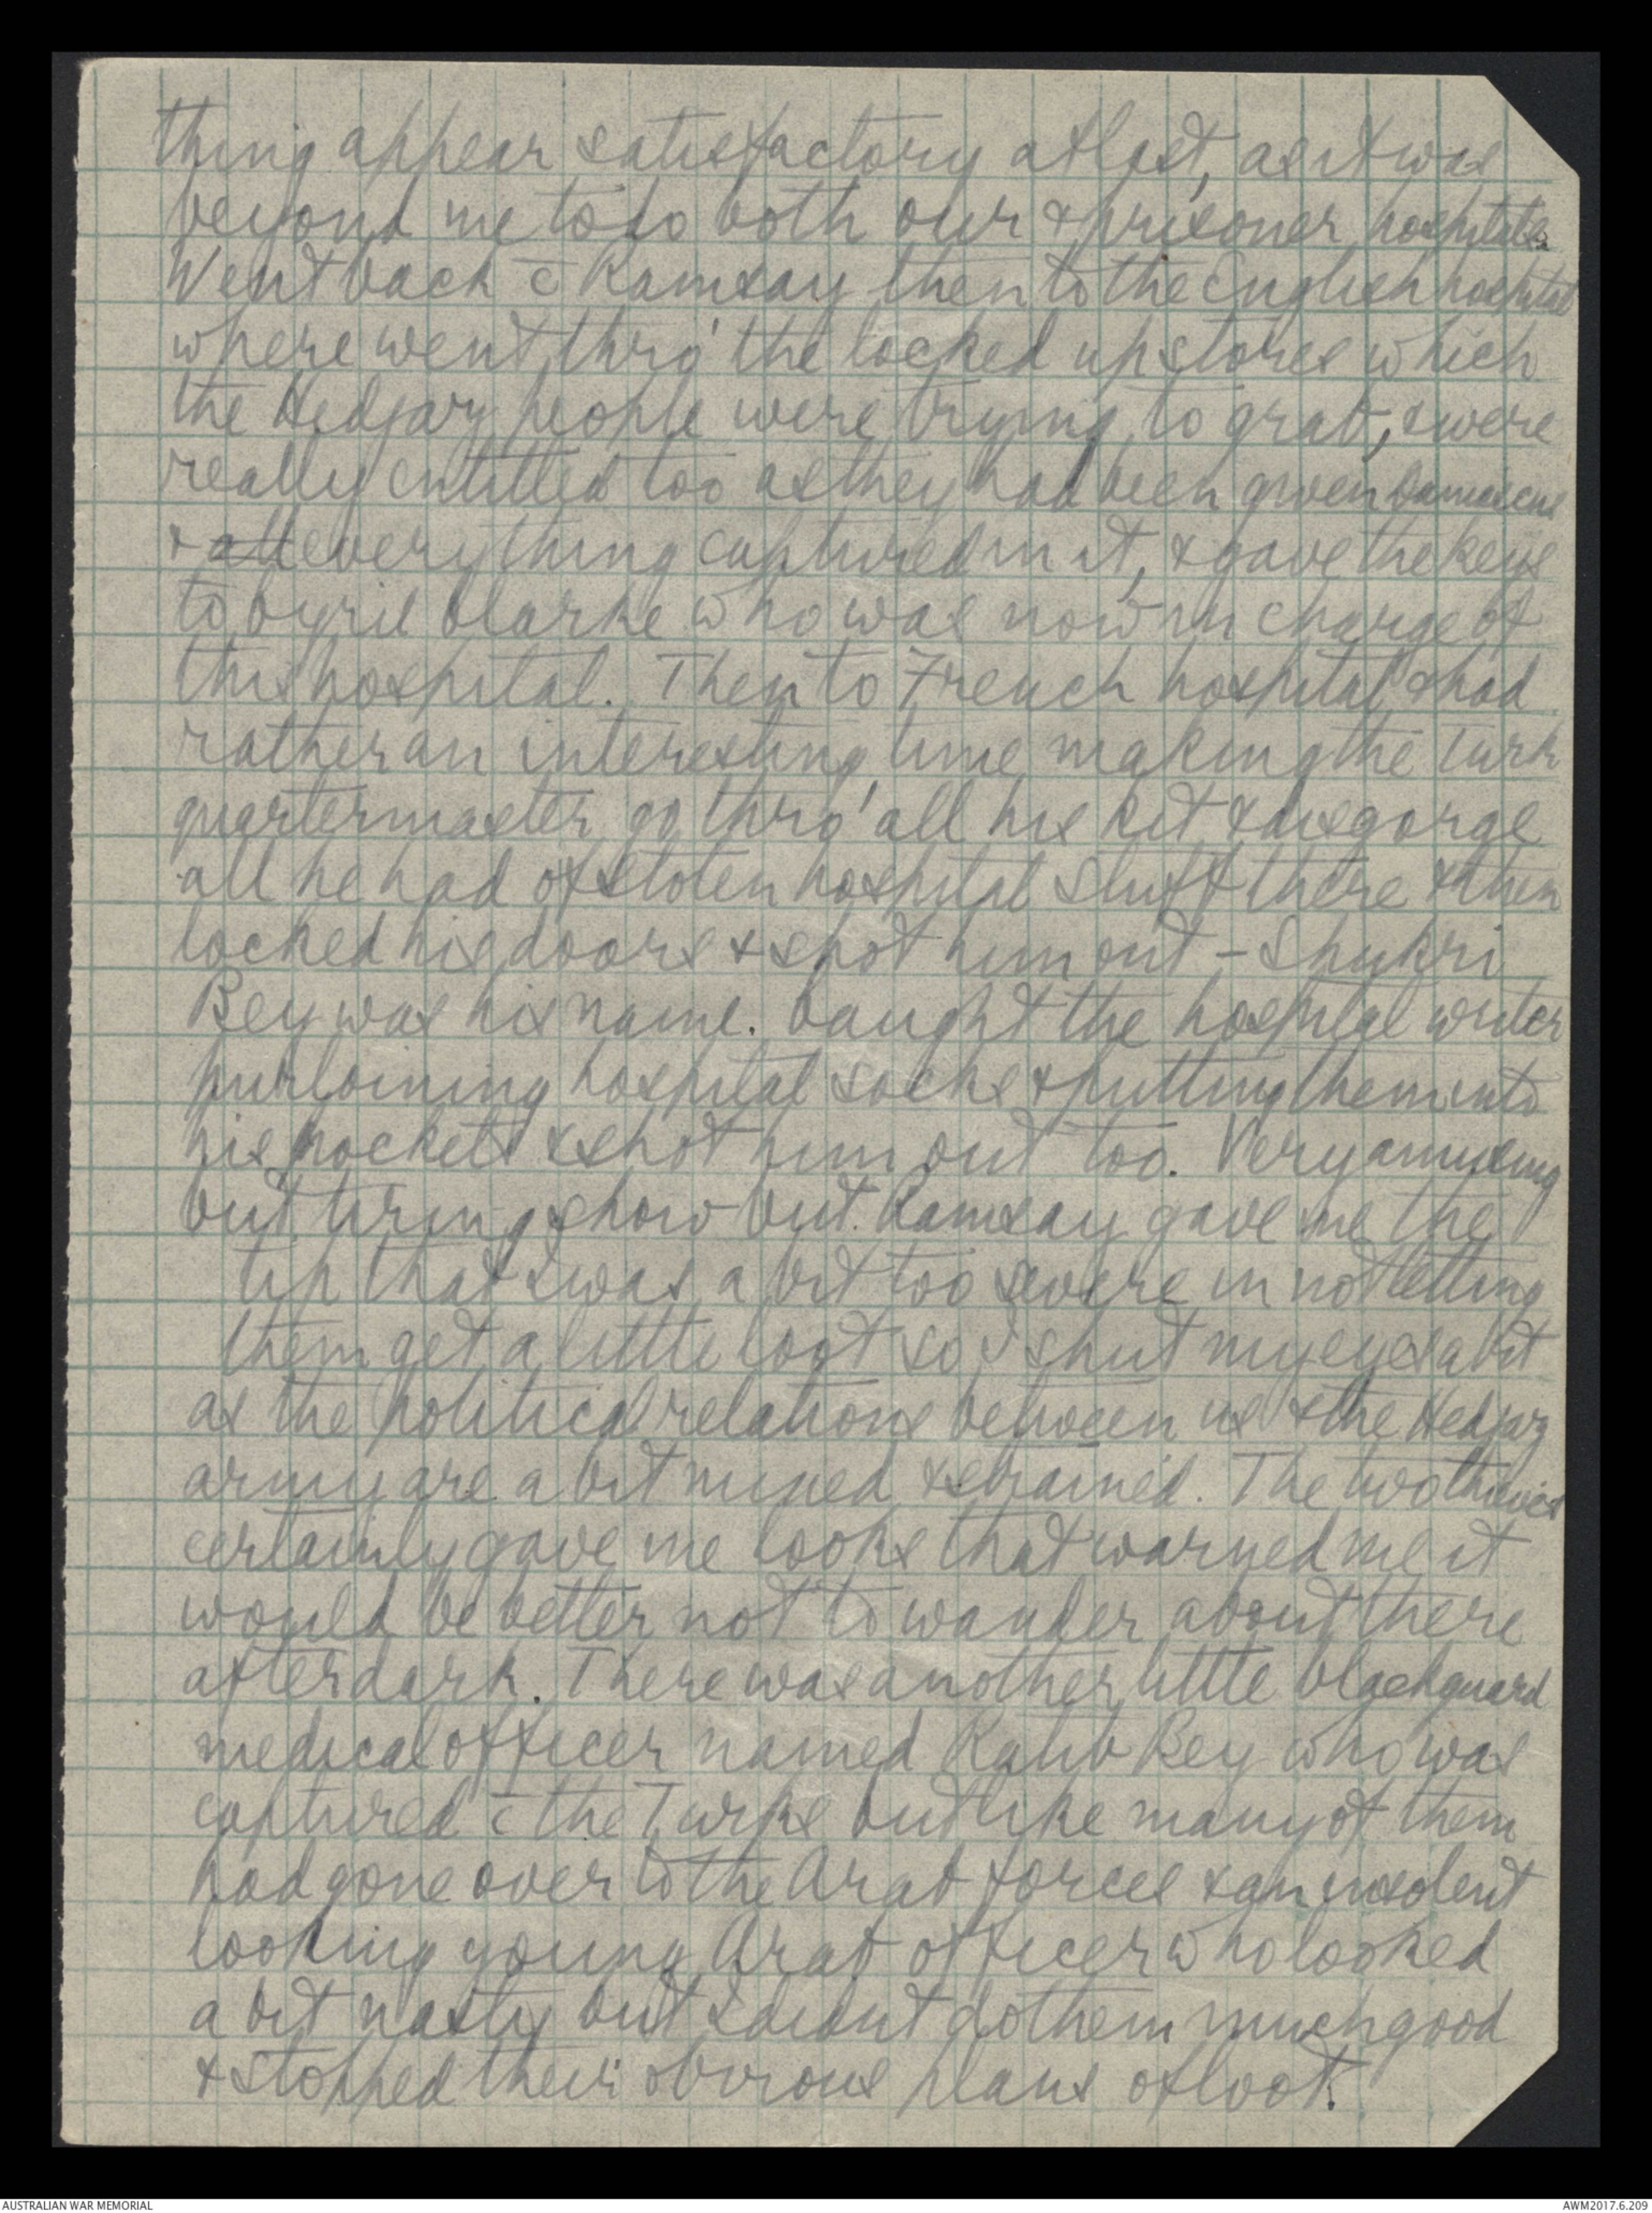 thing appear satisfactory at last, as it was
beyond me to do both our & prisoner hospitals.
Went back c̄ Ramsay then to the English hospital
where went thro' the locked up stores which
the Hedjaz people were trying to grab, & were
really entitled too as they had been given Damascus
& all everything captured in it, & gave the keys
to Cyril Clarke who was now in charge of
this hospital. Then to French hospital & had
rather an interesting time making the Turk
quartermaster go thro' all his kit & disgorge
all he had of stolen hospital stuff there & then
locked his doors & shot him out - Shukri
Bey was his name. Caught the hospital writer
purloining hospital socks & putting them into
his pockets & shot him out too. Very amusing
but tiring show but Ramsay gave me the
tip that I was a bit too severe in not letting
them get a little loot so I shut my eyes a bit
as the political relations between us & the Hedjaz
army are a bit mixed & strained. The two thieves
certainly gave me looks that warned me it
would be better not to wander about there
after dark. There was another little blackguard
medical officer named Bey who was
captured c̄ the Turks but like many of them
had gone over to the Arab forces & an insolent
looking young Arab officer who looked
a bit nasty but I didnt do them much good
& stopped their obvious plans of loot.
AUSTRALIAN WAR MEMORIAL
AWM2017.6.209